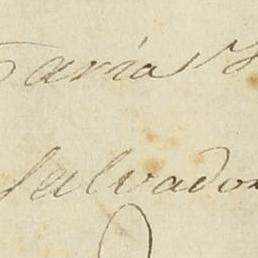 Farias
Salvador